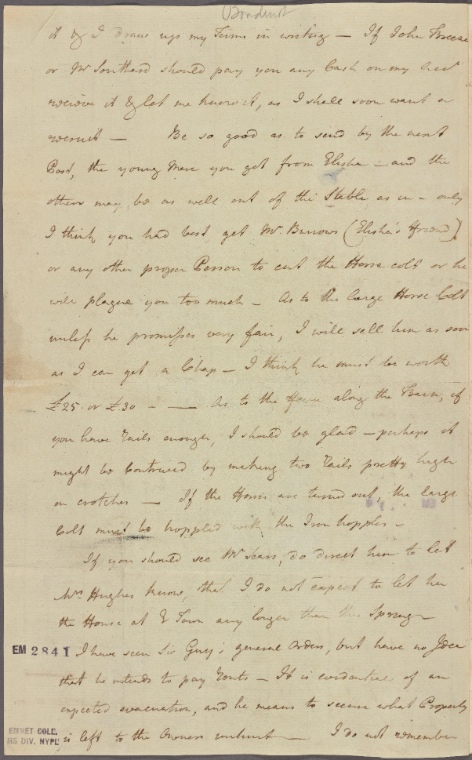 Boudinot
it & I draw up my Terms in writing — If John
or Mr Southard should pay you any Cash on my acct
receive it & let me know it, as I shall soon want a
recruit — Be so good as to send by the next
Post, the young Mare you got from Elisha — and the
other may be as well out of the Stable as in — only
I think you had best get Mr. Burrows (Elisha's friend)
or any other proper Person to cut the Horse colt or he
will plague you too much — As to the large Horse Colt
unless he promises very fair, I will sell him as soon
as I can get a Chap — I think he must be worth
£25 or £30 — — As to the fence along the Barn, if
you have rails enough, I should be glad — perhaps it
might be contrived by making two rails pretty high
on crotches — If the Horses are turned out, the large
Colt must be hoppled with the Iron hopples —
If you should see Mr Sears, do direct him to let
Mrs Hughes know, that I do not expect to let her
the House at E Town any longer than the Spring —
I have seen Sir Guy's general Orders, but have no Idea
that he intends to pay rents — It is evidential of an
expected evacuation, and he means to secure what Property
is left to the Owners — I do not remember
EM 2841
EMMET COLL.
MS DIV. NYPL